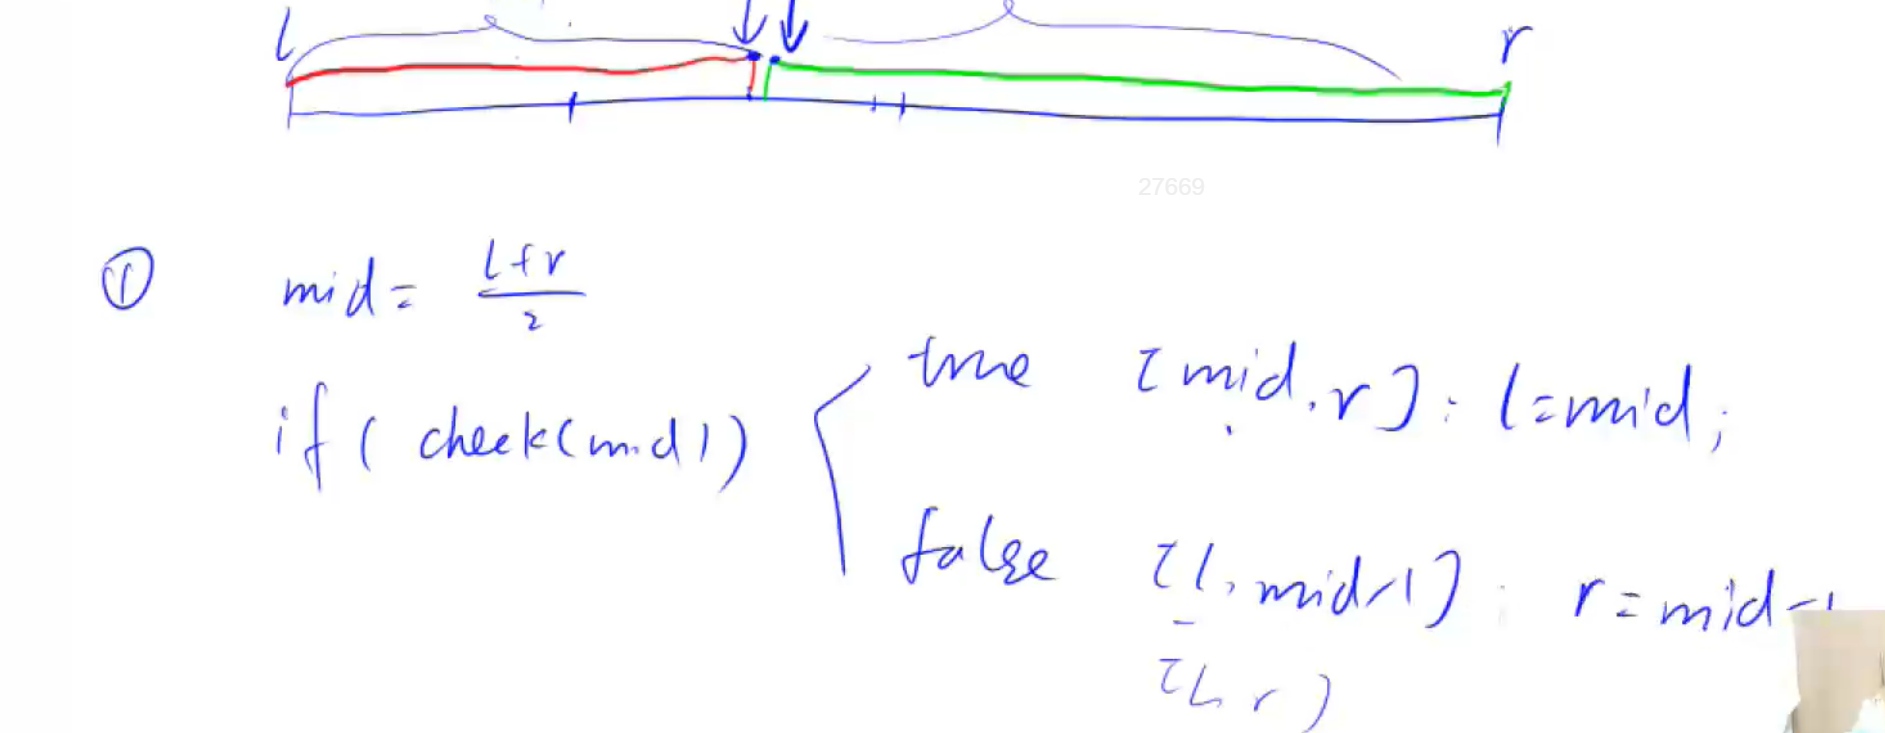 l r
27669
① mid = l+r
2
if ( check(mid) )
true [mid, r] : l=mid;
false [l, mid-1] : r=mid-1
[l, r)